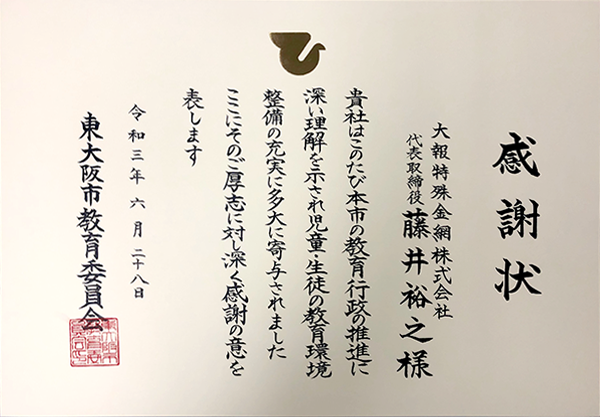 感謝状
大報特殊金網株式会社
代表取締役 藤井裕之様
貴社はこのたび本市の教育行政の推進に
深い理解を示され児童・生徒の教育環境
整備の充実に多大に寄与されました
ここにそのご厚志に対し深く感謝の意を
表します
令和三年六月二十八日
東大阪市教育委員会